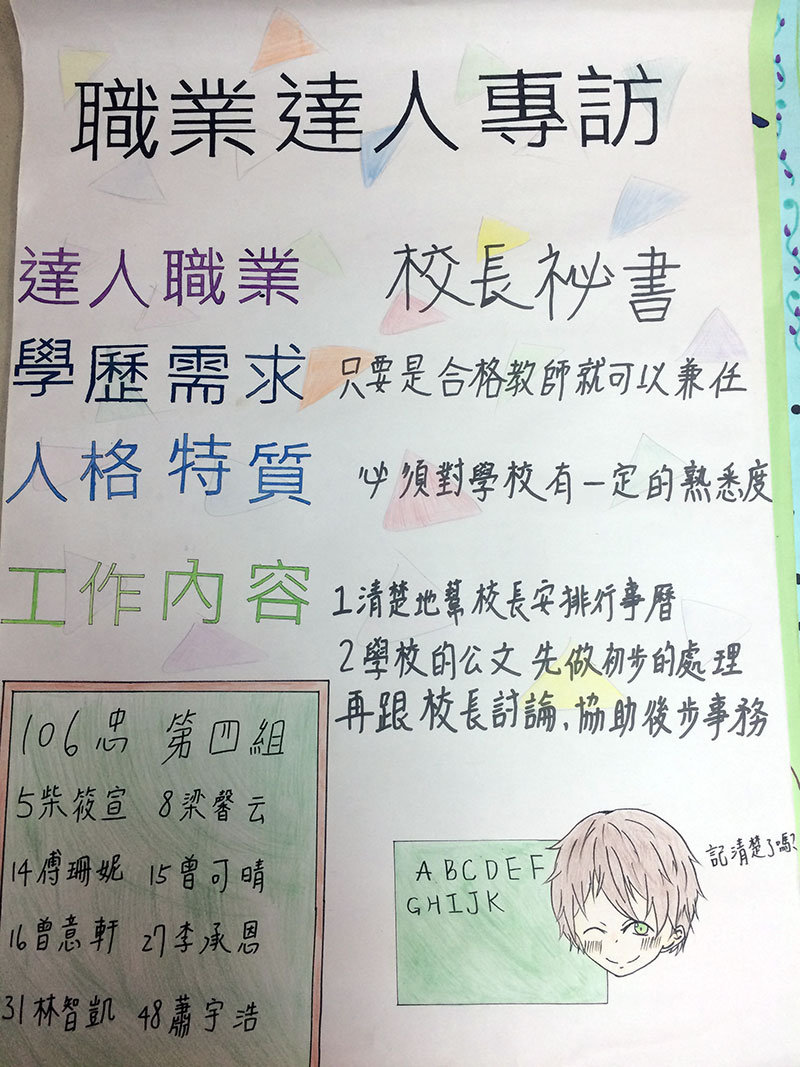 職業達人專訪
達人職業 校長祕書
學歷需求 只要是合格教師就可以兼任
人格特質 必須對學校有一定的熟悉度
工作內容 1清楚地幫校長安排行事曆
2學校的公文先做初步的處理
再跟校長討論,協助後步事務
106忠 第四組
5柴筱宣 8梁馨云
14傅珊妮 15曾可晴
16曾意軒 27李承恩
31林智凱 48蕭宇浩
ABCDEF
GHIJK
記清楚了嗎?